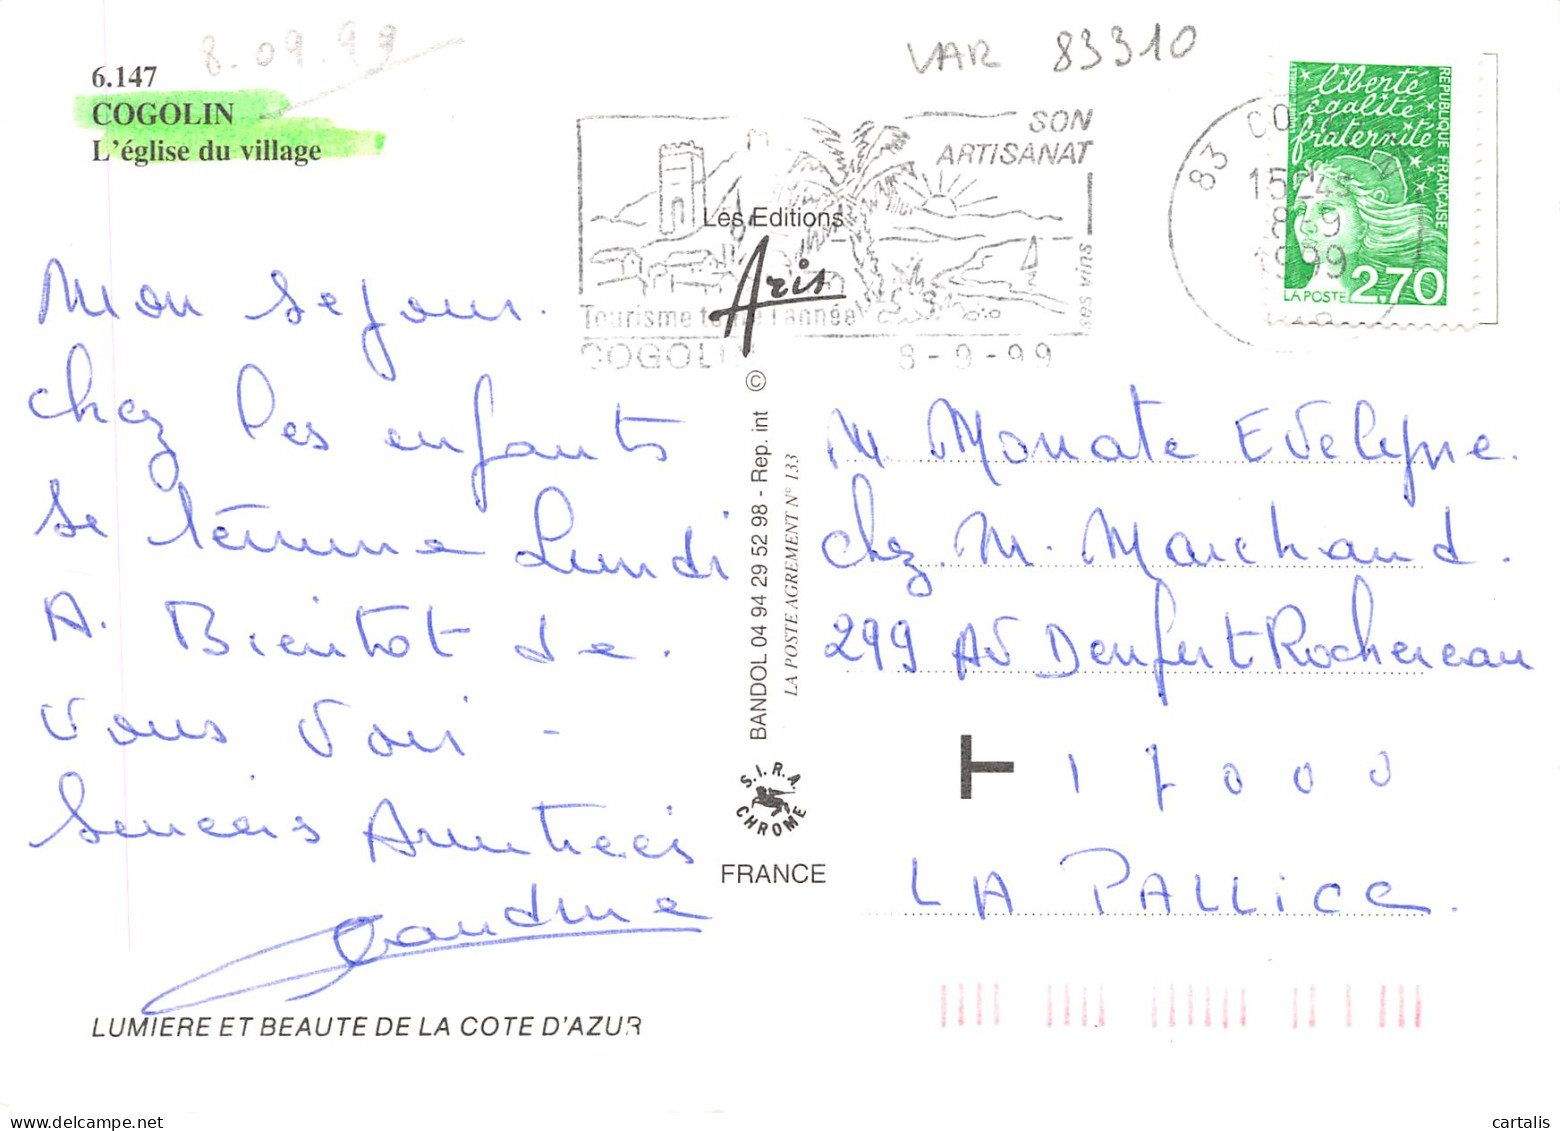 8.09.99
VAR 83310
6.147
COGOLIN
L'église du village
SON
ARTISANAT
ses vins
Tourisme toute l'année
COGOLIN
8-9-99
83 CO
15H45
8-9
1999
liberté
égalité
fraternité
RÉPUBLIQUE FRANÇAISE
LA POSTE 2,70
Les Editions
Aris
Mon sejour.
chez les enfants
se termine Lundi
A. Bientot de.
vous voir -
Sinceres Amitiées
LUMIERE ET BEAUTE DE LA COTE D'AZUR
BANDOL 04 94 29 52 98 - Rep. int ©
LA POSTE AGREMENT N° 133
S.I.R.A.
CHROME
FRANCE
M. Monate Evelyne.
chez. M. Marchand.
299 Av Denfert Rochereau
T 17000
LA PALLICE.